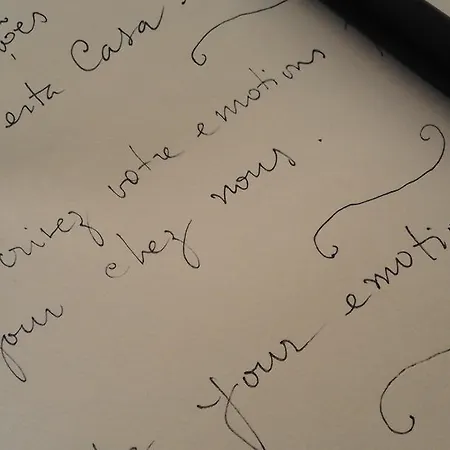 ões
esta Casa.
crivez votre emotions
jour chez nous.
your emoti